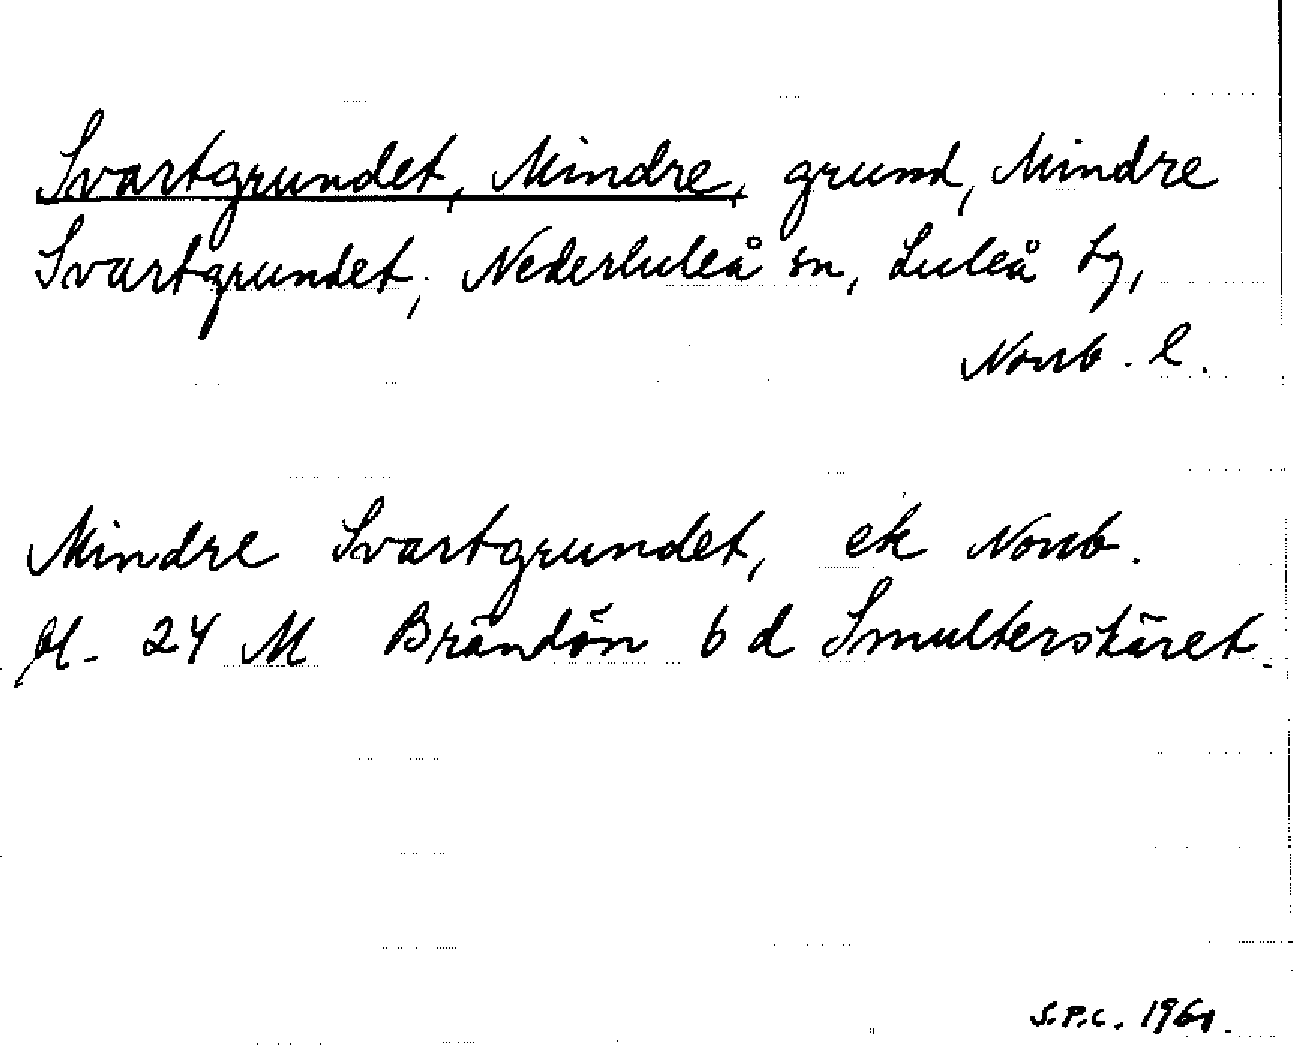 Svartgrundet, Mindre, grund, Mindre
Svartgrundet, Nederluleå sn, Luleå tg,
Norrb. l.
Mindre Svartgrundet, ek Norrb.
bl. 24 M Brändön 6 d Smulterskäret.
S.P.C. 1961.